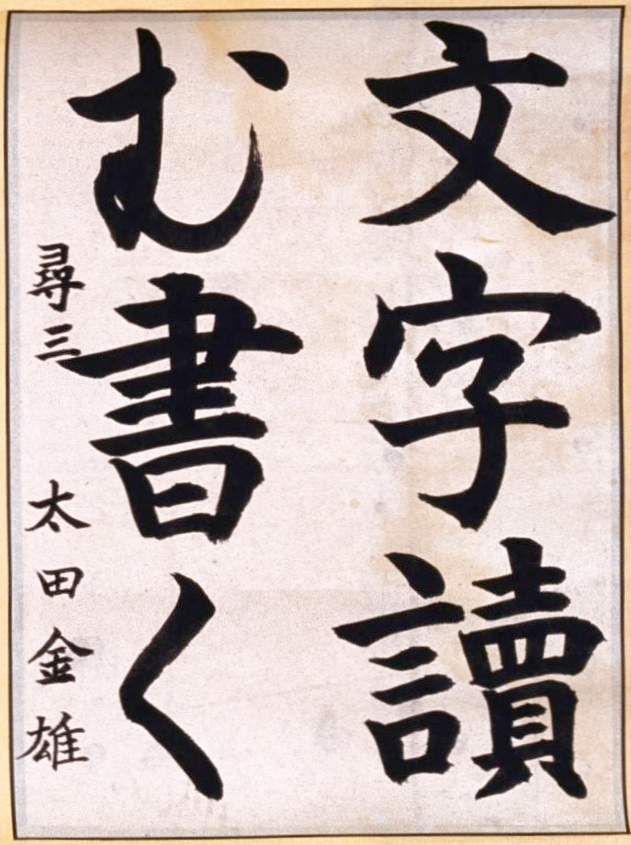 文字讀
む書く
尋三 太田金雄